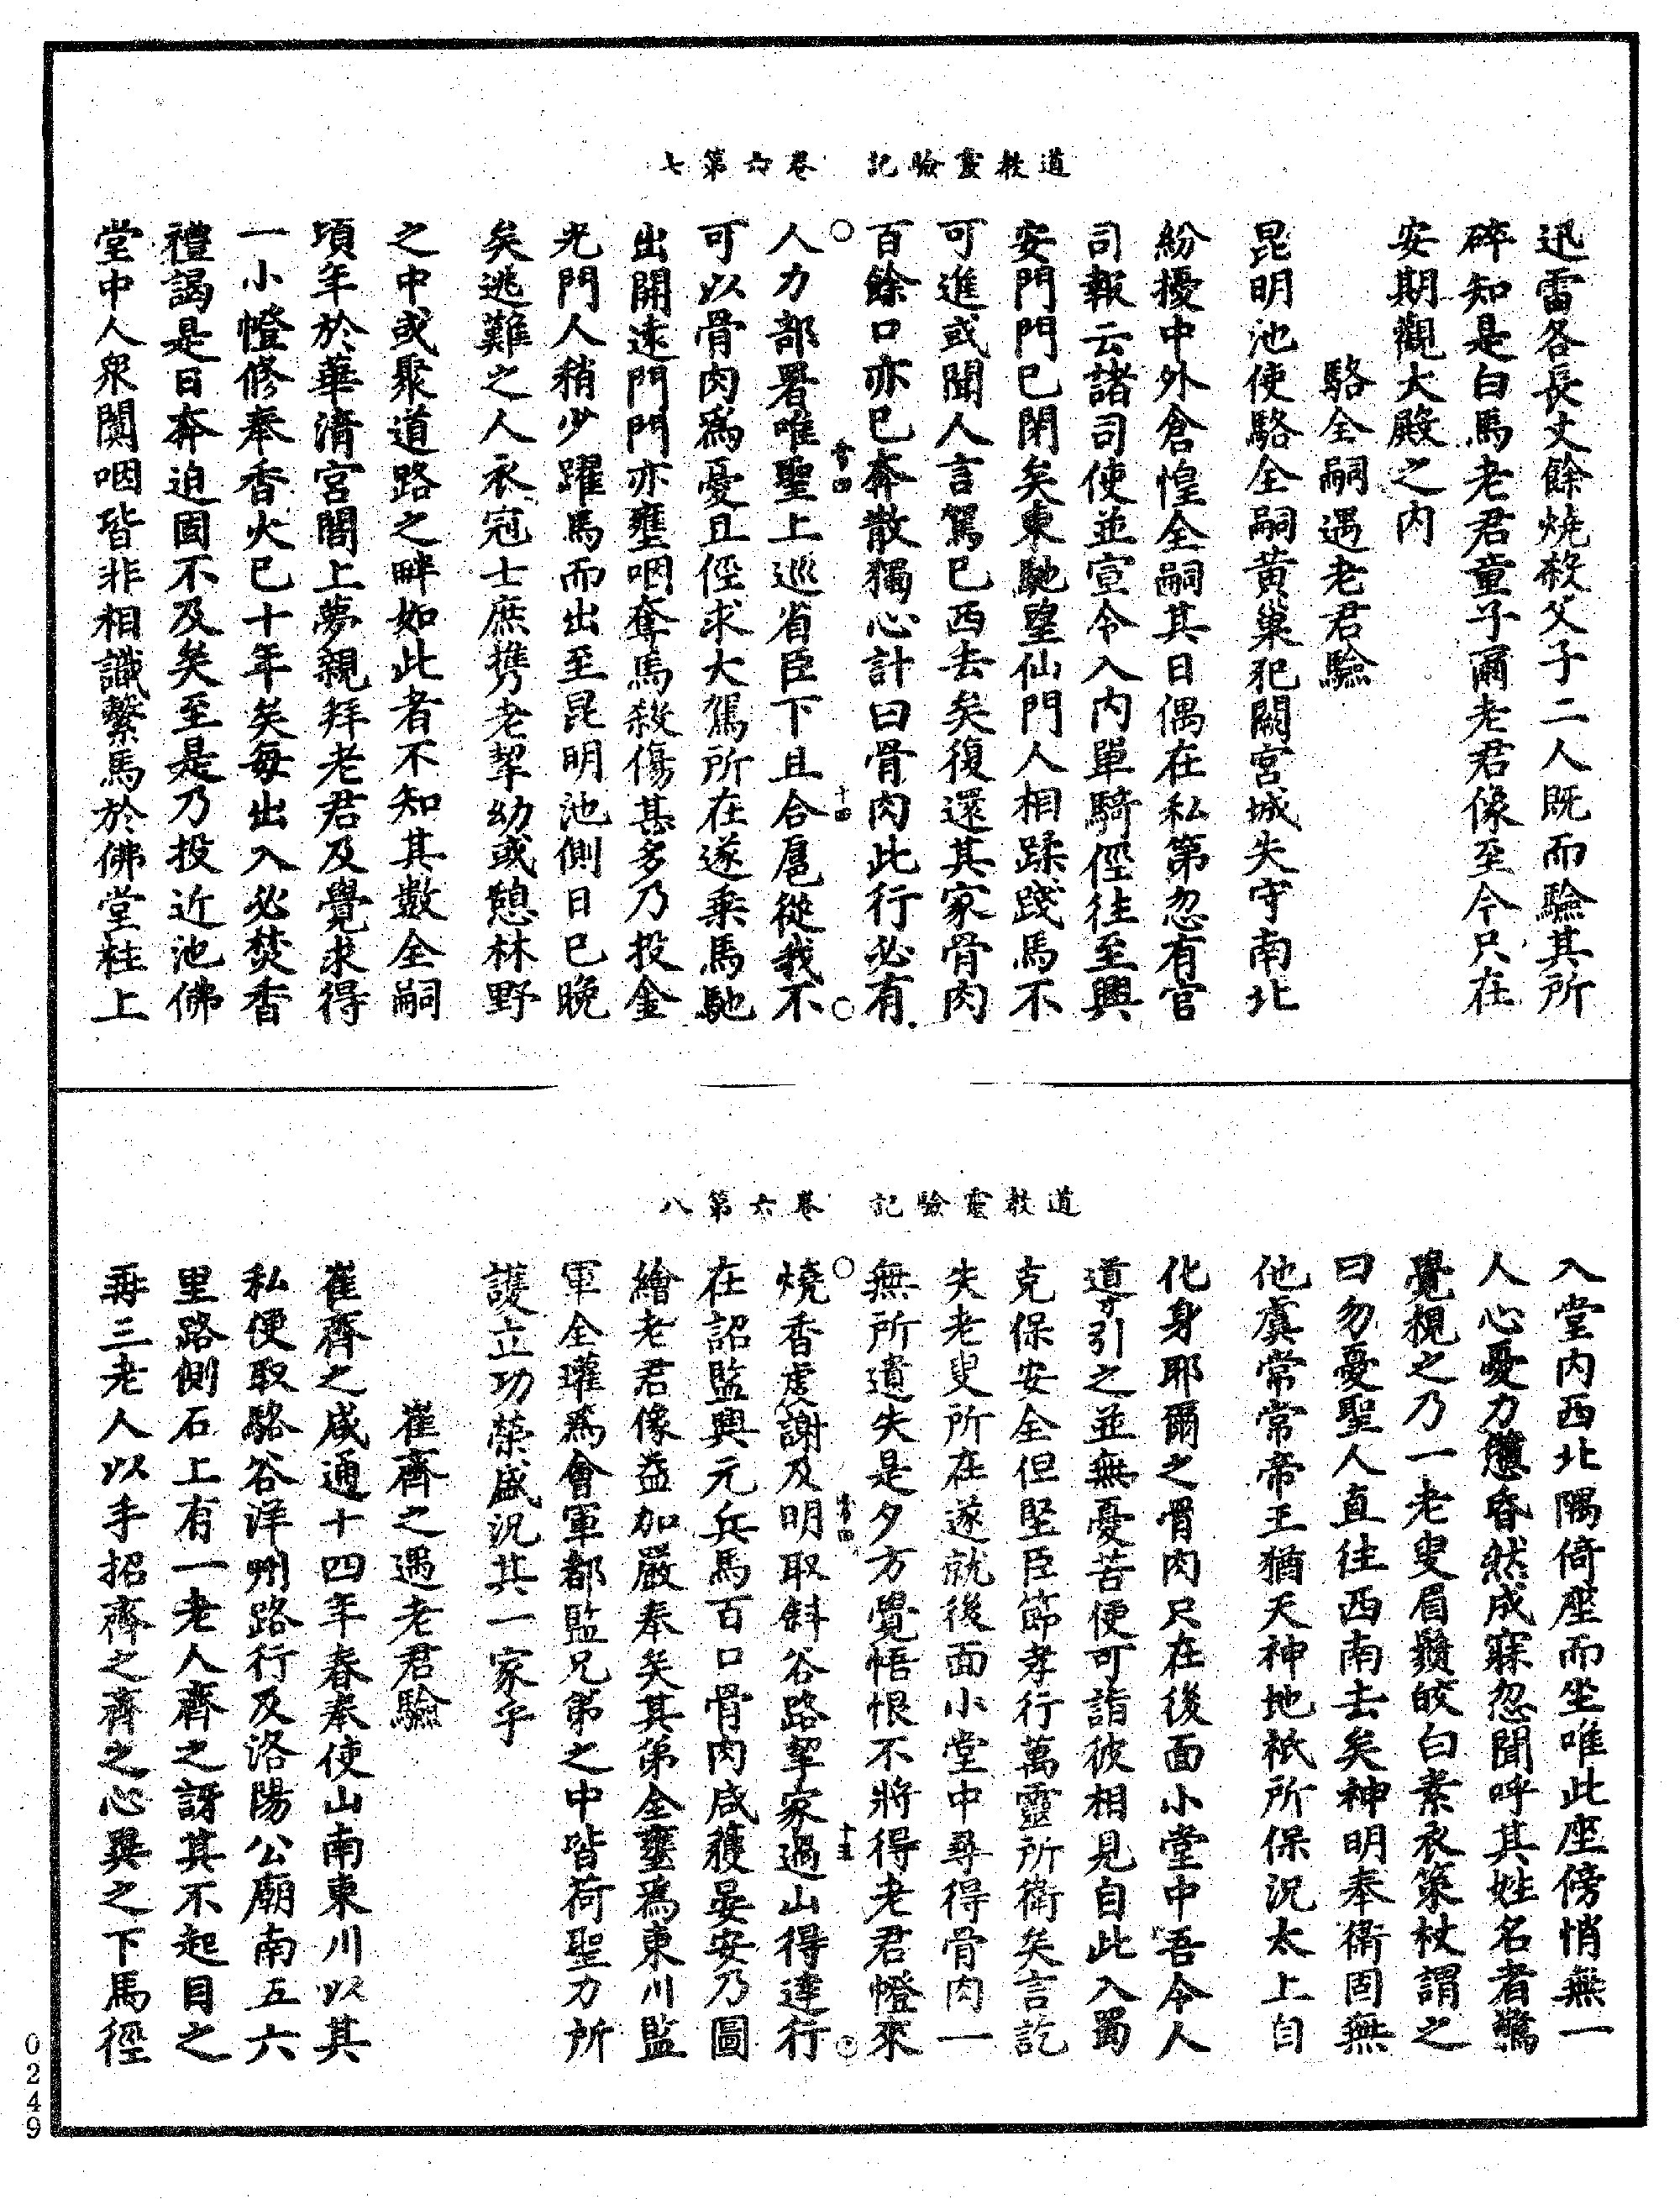 道教靈驗記　卷六第七
迅雷各長丈餘燒殺父子二人既而驗其所
碎知是白馬老君童子爾老君像至今只在
安期觀大殿之内
駱全嗣遇老君驗
昆明池使駱全嗣黄巢犯闕宮城失守南北
紛擾中外倉惶全嗣其日偶在私第忽有官
司報云諸司使並宣令入内單騎徑往至興
安門門已閉矣東馳望仙門人相蹂踐馬不
可進或聞人言駕已西去矣復還其家骨肉
百餘口亦已奔散獨心計曰骨肉此行必有
人力部署唯聖上巡省臣下且合扈從我不
可以骨肉爲憂且徑求大駕所在遂乘馬馳
出開遠門門亦壅咽奪馬殺傷甚多乃投金
光門人稍少躍馬而出至昆明池側日已晚
矣逃難之人衣冠士庶携老挈幼或憩林野
之中或聚道路之畔如此者不知其數全嗣
頃年於華清宮閣上夢親拜老君及覺求得
一小㡧修奉香火已十年矣每出入必焚香
禮謁是日奔迫固不及矣至是乃投近池佛
堂中人衆闐咽皆非相識繫馬於佛堂柱上
道教靈驗記　卷六第八
入堂内西北隅倚座而坐唯此座傍悄無一
人心憂力憊昏然成寐忽聞呼其姓名者驚
覺視之乃一老叟眉鬚皎白素衣策杖謂之
曰勿憂聖人直往西南去矣神明奉衞固無
他虞常常帝王猶天神地祇所保況太上自
化身耶爾之骨肉只在後面小堂中吾令人
道引之並無憂苦便可詣彼相見自此入蜀
克保安全但堅臣節孝行萬靈所衞矣言訖
失老叟所在遂就後面小堂中尋得骨肉一
無所遺失是夕方覺悟恨不將得老君㡧來
燒香虔謝及明取斜谷路挈家過山得達行
在詔監興元兵馬百口骨肉咸獲晏安乃圖
繪老君像益加嚴奉矣其弟全壅爲東川監
軍全瓘爲會軍都監兄弟之中皆荷聖力所
護立功榮盛況其一家乎
崔齊之遇老君驗
崔齊之咸通十四年春奉使山南東川以其
私便取駱谷洋州路行及洛陽公廟南五六
里路側石上有一老人齊之訝其不起目之
再三老人以手招齊之齊之心異之下馬徑
0249